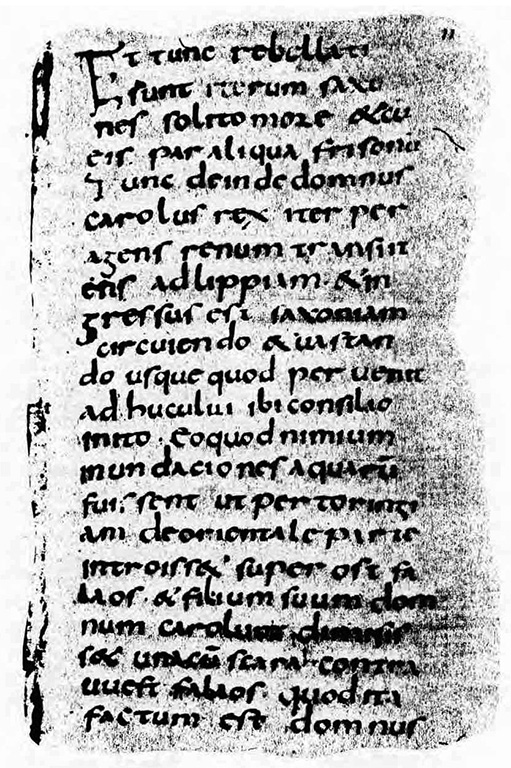 Et tunc rebellati
sunt iterum saxo
nes solito more & cū
eis pars aliqua frisonū
Tunc deinde domnus
carolus rex iter per
agens renum transiit
ad lippiam & in
gressus est saxoniam
circuiendo & uastan
do usque quod peruenit
ad hucului ibi consilio
inito. Eo quod nimium
inundaciones aquarū
fuissent ut per toringi
am de orientale parte
introiss& super ostfa
laos & filium suum dom
num carolum dimisis
s& unacū scara contra
uuestfalaos. quod ita
factum est domnus